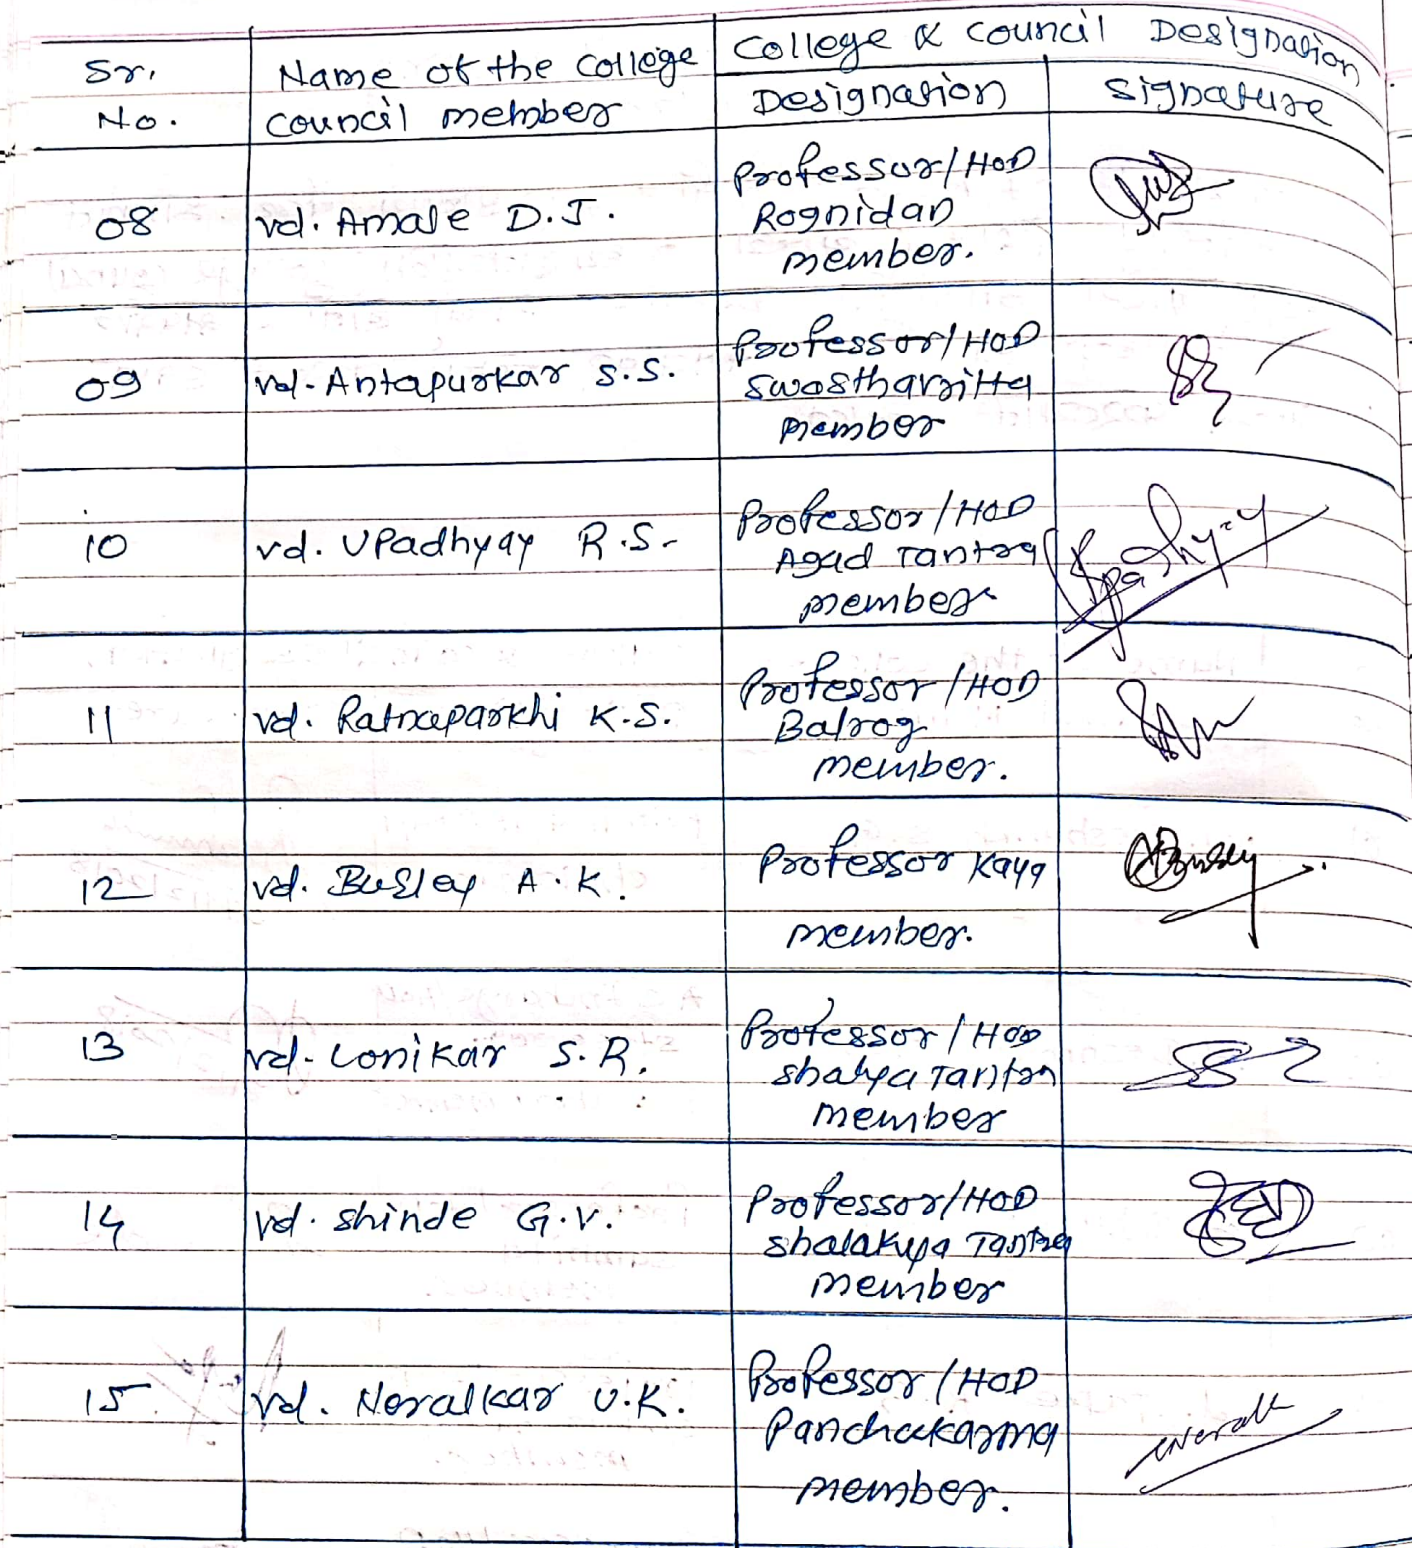 College & Council Designation
Sr. No.
Name of the College Council member
Designation
Signature
08
vd. Amale D.J.
Professor/HOD
Rognidan
member.
09
vd. Antapurkar S.S.
Professor/HOD
Swasthavritta
member
10
vd. Upadhyay R.S.
Professor/HOD
Agad Tantra
member
11
vd. Ratnaparkhi K.S.
Professor/HOD
Balrog
member.
12
vd. A.K.
Professor Kaya
member.
13
vd. Lonikar S.R.
Professor/HOD
Shalya Tantra
member
14
vd. Shinde G.V.
Professor/HOD
Shalakya Tantra
member
15
vd. Neralkar U.K.
Professor/HOD
Panchakarma
member.